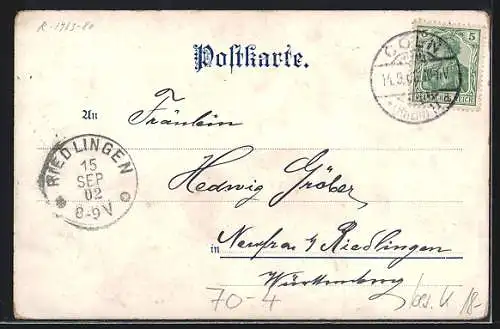 R-1963-80
Postkarte.
CÖLN
14.9.02
5
An Fräulein
RIEDLINGEN
15
SEP
02
8-9V
Hedwig Gröber
in Neufra b/ Riedlingen
Württemberg
70-4
18-